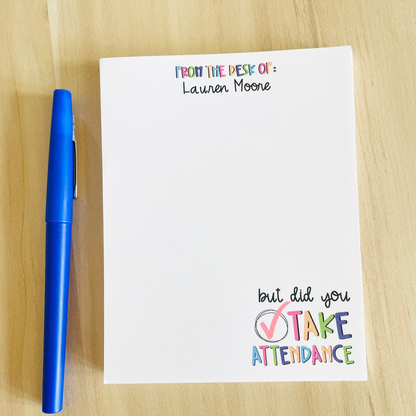 FROM THE DESK OF:
Lauren Moore
but did you
TAKE
ATTENDANCE